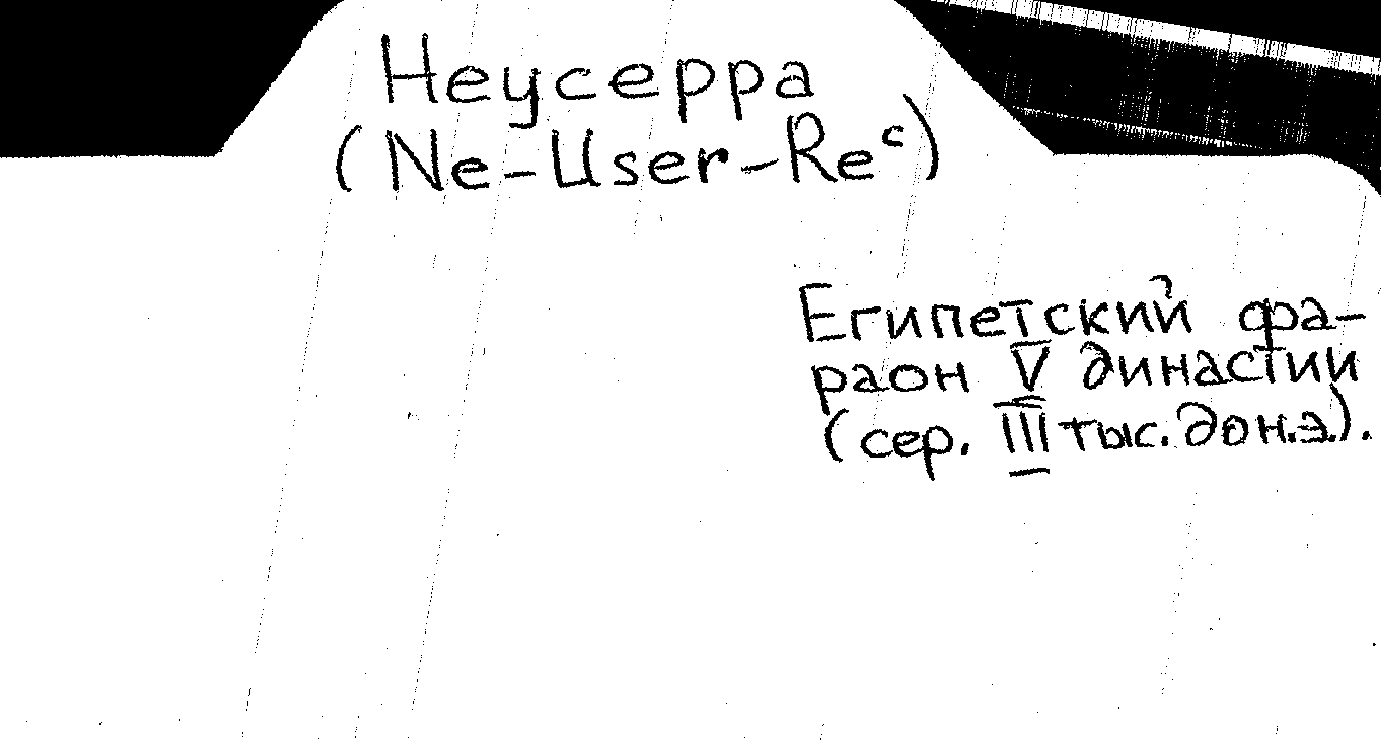 Неусерра
(Ne-User-Reᶜ)
Египетский фа-
раон V династии
(сер. III тыс. до н.э.).